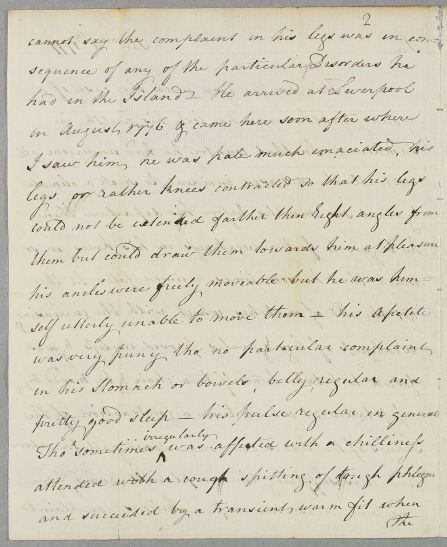 2
cannot say the complaint in his legs was in con-
sequence of any of the particular Disorders he
had in the Island - He arrived at Liverpool
in August 1776 & came here soon after where
I saw him, he was pale much imaciated, his
legs or rather knees contracted so that his legs
could not be extended farther then Right angles from
them but could draw them towards him at pleasure
his ancles were freely moveable but he was him-
self utterly unable to move them - his Apetite
was very puny tho no particular complaint
in his Stomach or bowels, belly regular and
pretty good sleep - his pulse regular in general
Tho' sometimes irregularly was affected with a chilliness
attended with a cough spitting of tough phlegm
and succeeded by a transient warm fit when
The